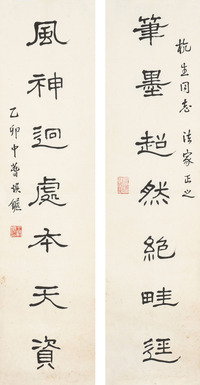 杭生同志 法家正之
筆墨超然絕畦逕
風神迥處本天資
乙卯中